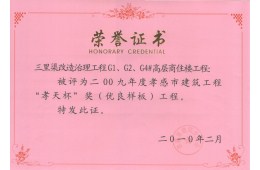 荣誉证书
HONORARY CREDENTIAL
三里渠改造治理工程G1、G2、G4#高层商住楼工程:
被评为二00九年度孝感市建筑工程
“孝天杯”奖（优良样板）工程。
特发此证。
二0一0年二月